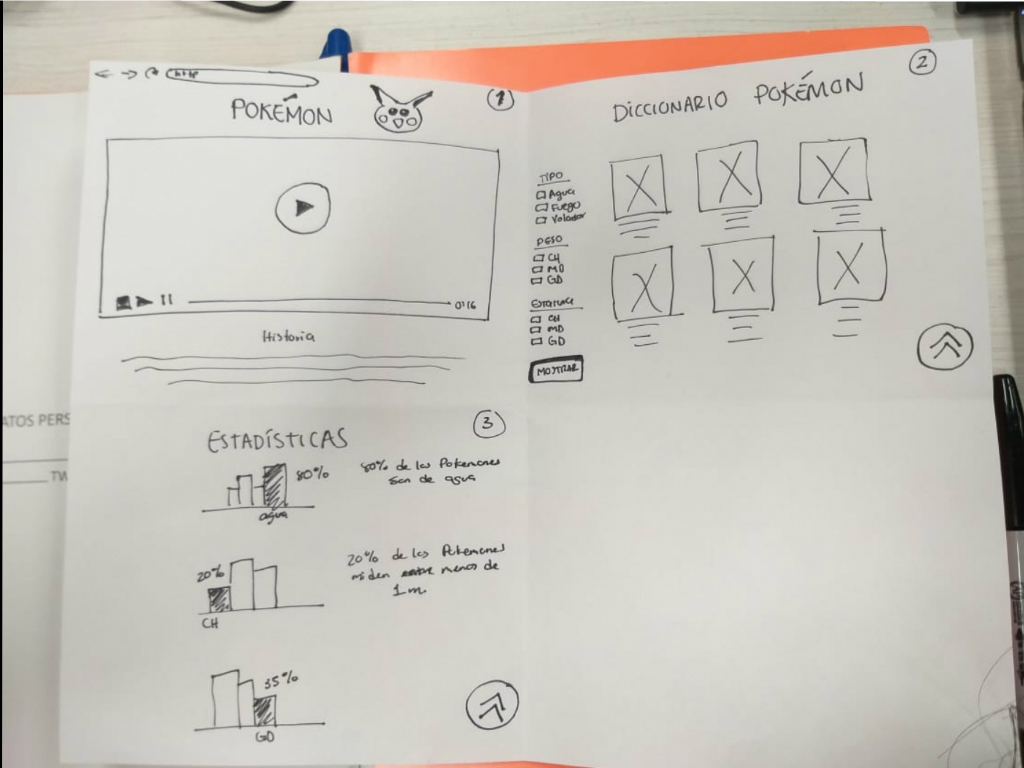 http
POKÉMON
1
01:16
Historia
2
DICCIONARIO POKÉMON
TIPO
Agua
Fuego
Volador
PESO
CH
MD
GD
ESTATURA
CH
MD
GD
MOSTRAR
3
ESTADÍSTICAS
80%
agua
80% de los Pokemones
son de agua
20%
CH
20% de los Pokemones
miden menos de
1m.
35%
GD
ATOS PERS
TW